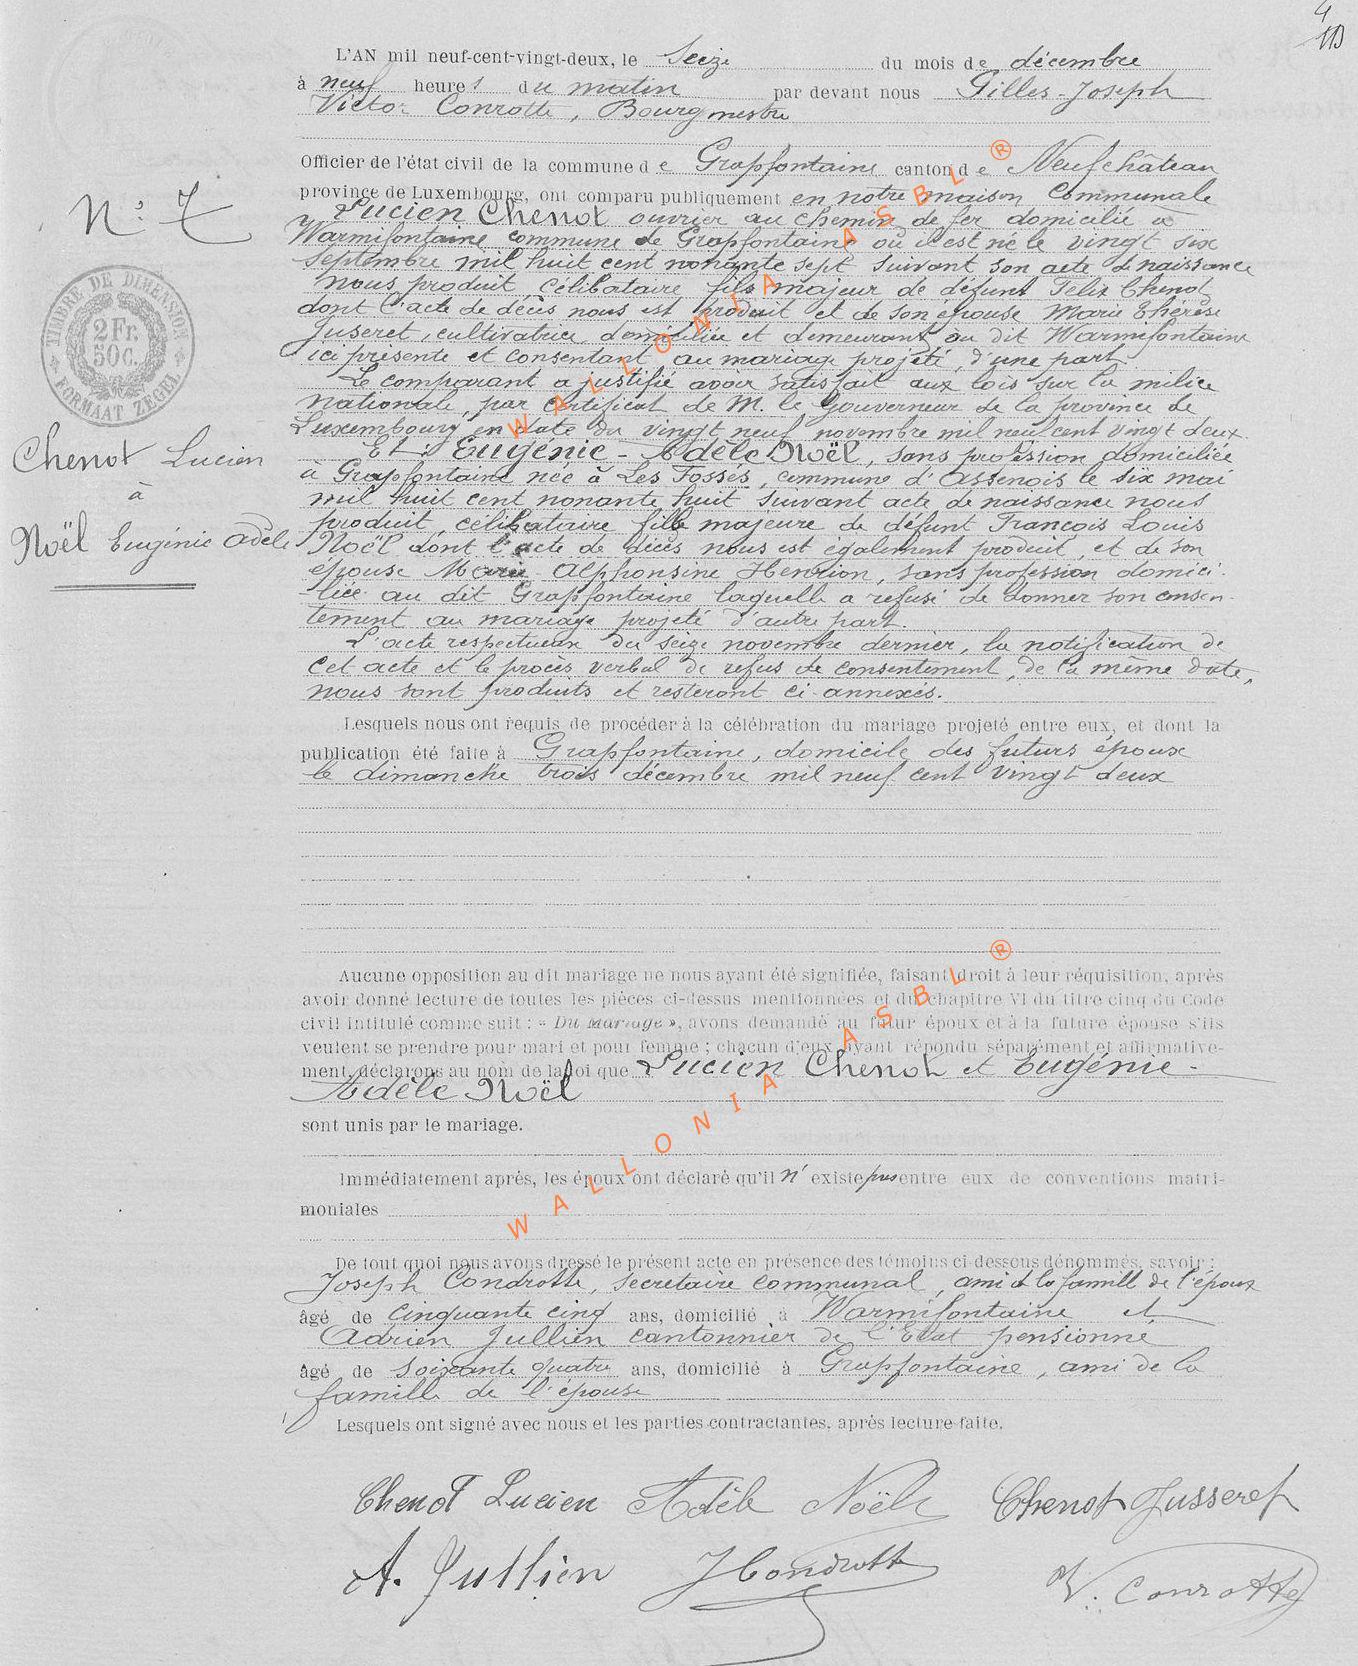 4
113
L'AN mil neuf-cent-vingt-deux, le Seize du mois de décembre
à neuf heures du matin par devant nous Gilles-Joseph
Victor Conrotte, Bourgmestre
Officier de l'état civil de la commune de Grapfontaine canton de Neufchâteau
province de Luxembourg, ont comparu publiquement en notre maison Communale
Lucien Chenot ouvrier au chemin de fer domicilié à
Warmifontaine commune de Grapfontaine où il est né le vingt six
Septembre mil huit cent nonante sept suivant son acte de naissance
nous produit, célibataire fils majeur de défunt Félix Chenot
dont l'acte de décès nous est produit et de son épouse Marie Thérèse
Juseret, cultivatrice, domiciliée et demeurant, au dit Warmifontaine
ici présente et consentant au mariage projeté, d'une part
Le comparant a justifié avoir satisfait aux lois sur la milice
nationale, par certificat de M. le Gouverneur de la province de
Luxembourg en date du vingt neuf novembre mil neuf cent vingt deux.
Et: Eugénie-Adèle Noël, sans profession domiciliée
à Grapfontaine née à Les Fossés, commune d'Assenois le six mai
mil huit cent nonante huit suivant acte de naissance nous
produit, célibataire fille majeure de défunt François Louis
Noël dont l'acte de décès nous est également produit, et de son
épouse Marie Alphonsine Henrion, sans profession domici
liée au dit Grapfontaine laquelle a refusé de donner son consen-
tement au mariage projeté d'autre part.
L'acte respectueux du seize novembre dernier, la notification de
cet acte et le procès verbal de refus de consentement, de la même date,
nous sont produits et resteront ci-annexés.
Lesquels nous ont requis de procéder à la célébration du mariage projeté entre eux, et dont la
publication été faite à Grapfontaine, domicile des futurs époux
le dimanche trois décembre mil neuf cent vingt deux
Aucune opposition au dit mariage ne nous ayant été signifiée, faisant droit à leur réquisition, après
avoir donné lecture de toutes les pièces ci-dessus mentionnées et du chapitre VI du titre cinq du Code
civil intitulé comme suit : « Du Mariage », avons demandé au futur époux et à la future épouse s'ils
veulent se prendre pour mari et pour femme ; chacun d'eux ayant répondu séparément et affirmative-
ment, déclarons au nom de la loi que Lucien Chenot et Eugénie-
Adèle Noël
sont unis par le mariage.
Immédiatement après, les époux ont déclaré qu'il n'existe pas entre eux de conventions matri-
moniales
De tout quoi nous avons dressé le présent acte en présence des témoins ci-dessous dénommés, savoir :
Joseph Condrotte, secrétaire communal, ami de la famille de l'époux
âgé de cinquante cinq ans, domicilié à Warmifontaine et
Adrien Jullien cantonnier de l'Etat pensionné
âgé de soixante quatre ans, domicilié à Grapfontaine, ami de la
famille de l'épouse
Lesquels ont signé avec nous et les parties contractantes, après lecture faite.
Chenot Lucien Adèle Noël Chenot Jusseret
A. Jullien J Condrotte V. Conrotte
N° 7
TIMBRE DE DIMENSION
2 Fr.
50c.
FORMAAT ZEGEL
Chenot Lucien
à
Noël Eugénie Adèle
WALLONIA ASBL ®
WALLONIA ASBL ®